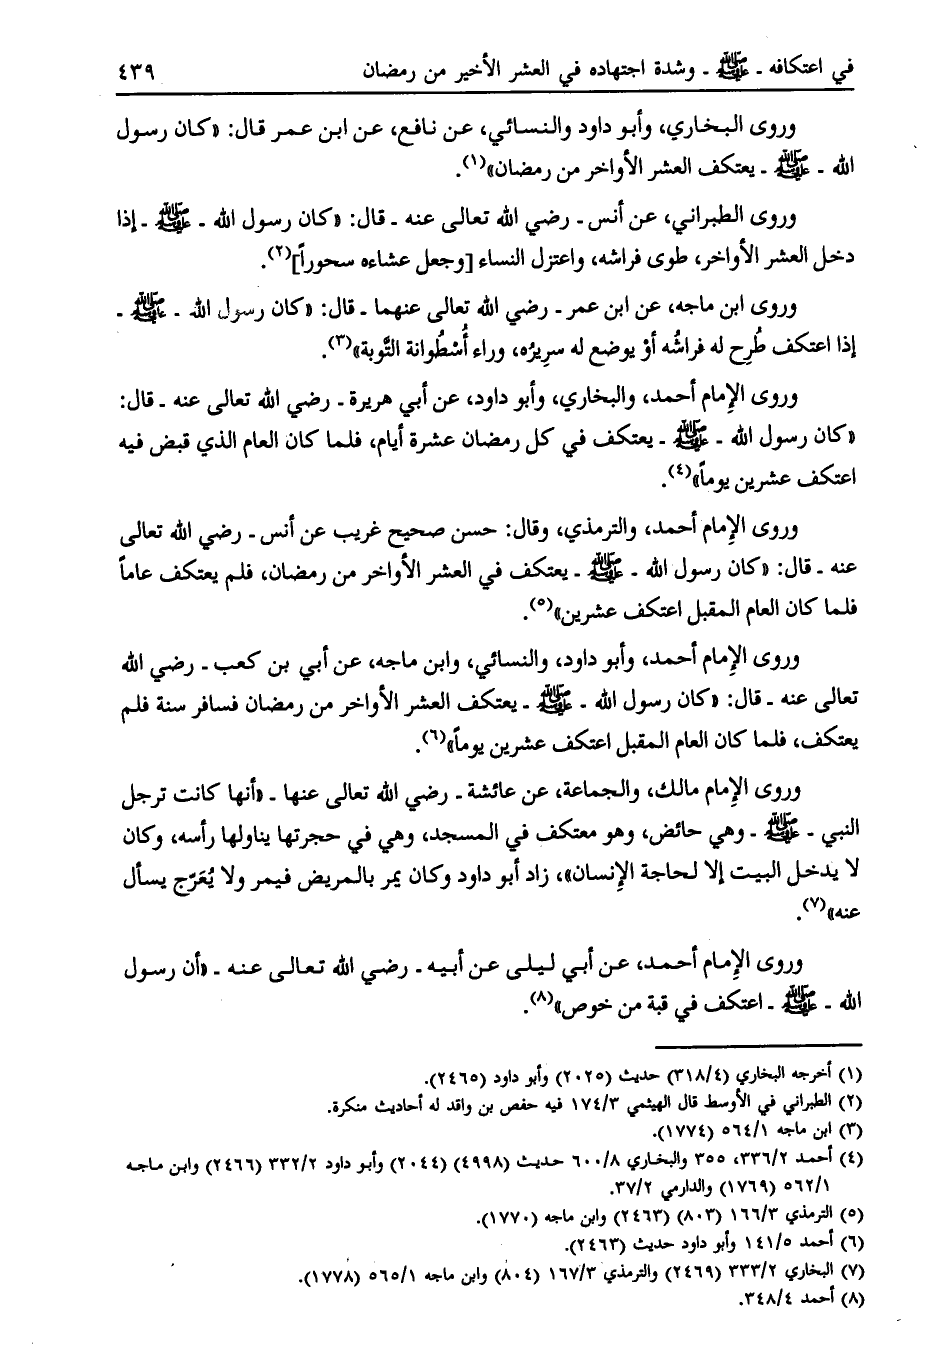 في اعتكافه ـ ﷺ ـ وشدة اجتهاده في العشر الأخير من رمضان ٤٣٩
وروى البخاري، وأبو داود والنسائي، عن نافع، عن ابن عمر قال: «كان رسول
الله ـ ﷺ ـ يعتكف العشر الأواخر من رمضان»(١).
وروى الطبراني، عن أنس ـ رضي الله تعالى عنه ـ قال: «كان رسول الله ـ ﷺ ـ إذا
دخل العشر الأواخر، طوى فراشه، واعتزل النساء [وجعل عشاءه سحوراً](٢).
وروى ابن ماجه، عن ابن عمر ـ رضي الله تعالى عنهما ـ قال: «كان رسول الله ـ ﷺ ـ
إذا اعتكف طُرِح له فراشُه أوْ يوضع له سرِيرُه، وراء أُسْطُوانة التَّوبة»(٣).
وروى الإِمام أحمد، والبخاري، وأبو داود، عن أبي هريرة ـ رضي الله تعالى عنه ـ قال:
«كان رسول الله ـ ﷺ ـ يعتكف في كل رمضان عشرة أيام، فلما كان العام الذي قبض فيه
اعتكف عشرين يوماً»(٤).
وروى الإِمام أحمد، والترمذي، وقال: حسن صحيح غريب عن أنس ـ رضي الله تعالى
عنه ـ قال: «كان رسول الله ـ ﷺ ـ يعتكف في العشر الأواخر من رمضان، فلم يعتكف عاماً
فلما كان العام المقبل اعتكف عشرين»(٥).
وروى الإِمام أحمد، وأبو داود، والنسائي، وابن ماجه، عن أبي بن كعب ـ رضي الله
تعالى عنه ـ قال: «كان رسول الله ـ ﷺ ـ يعتكف العشر الأواخر من رمضان فسافر سنة فلم
يعتكف، فلما كان العام المقبل اعتكف عشرين يوماً»(٦).
وروى الإِمام مالك، والجماعة، عن عائشة ـ رضي الله تعالى عنها ـ «أنها كانت ترجل
النبي ـ ﷺ ـ وهي حائض، وهو معتكف في المسجد، وهي في حجرتها يناولها رأسه، وكان
لا يدخل البيت إلا لحاجة الإِنسان»، زاد أبو داود وكان يمر بالمريض فيمر ولا يُعَرّج يسأل
عنه»(٧).
وروى الإِمام أحمد، عن أبي ليلى عن أبيه ـ رضي الله تعالى عنه ـ «أن رسول
الله ـ ﷺ ـ اعتكف في قبة من خوص»(٨).
(١) أخرجه البخاري (٣١٨/٤) حديث (٢٠٢٥) وأبو داود (٢٤٦٥).
(٢) الطبراني في الأوسط قال الهيثمي ١٧٤/٣ فيه حفص بن واقد له أحاديث منكرة.
(٣) ابن ماجه ٥٦٤/١ (١٧٧٤).
(٤) أحمد ٣٣٦/٢، ٣٥٥ والبخاري ٦٠٠/٨ حديث (٤٩٩٨) (٢٠٤٤) وأبو داود ٣٣٢/٢ (٢٤٦٦) وابن ماجه
٥٦٢/١ (١٧٦٩) والدارمي ٣٧/٢.
(٥) الترمذي ١٦٦/٣ (٨٠٣) (٢٤٦٣) وابن ماجه (١٧٧٠).
(٦) أحمد ١٤١/٥ وأبو داود حديث (٢٤٦٣).
(٧) البخاري ٣٣٣/٢ (٢٤٦٩) والترمذي ١٦٧/٣ (٨٠٤) وابن ماجه ٥٦٥/١ (١٧٧٨).
(٨) أحمد ٣٤٨/٤.